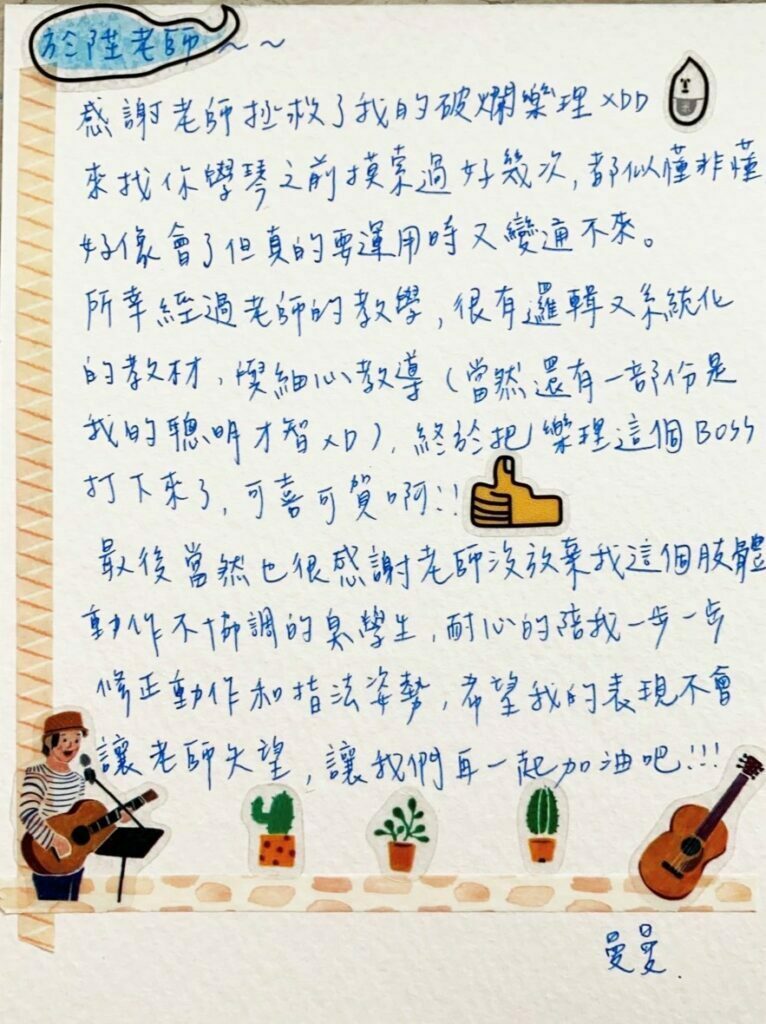 於陞老師～～
感謝老師拯救了我的破爛樂理XDD
來找你學琴之前摸索過好幾次，都似懂非懂
好像會了但真的要運用時又變通不來。
所幸經過老師的教學，很有邏輯又系統化
的教材，慢細心教導（當然還有一部份是
我的聰明才智XD），終於把樂理這個BOSS
打下來了，可喜可賀啊!!
最後當然也很感謝老師沒放棄我這個肢體
動作不協調的臭學生，耐心的陪我一步一步
修正動作和指法姿勢，希望我的表現不會
讓老師失望，讓我們再一起加油吧!!!
曼曼.